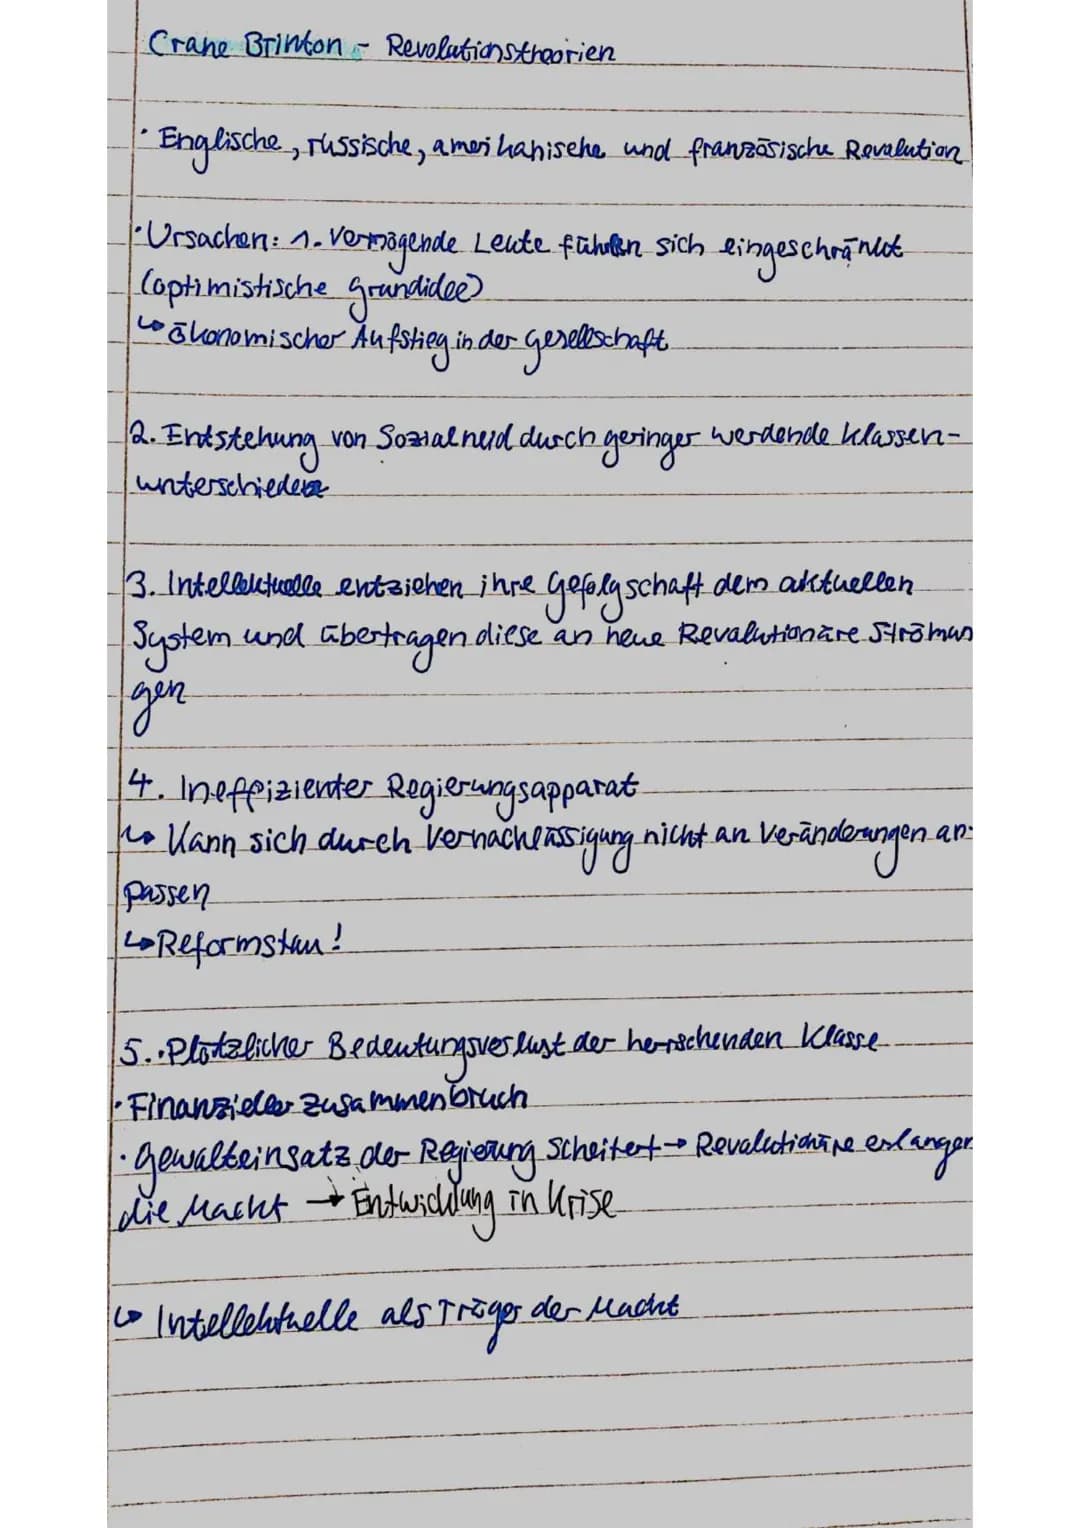 Crane Brinton - Revolutionstheorien
· Englische, russische, amerikanische und französische Revolution
· Ursachen: 1. Vermögende Leute fühlen sich eingeschränkt
(optimistische Grundidee)
↳ ökonomischer Aufstieg in der Gesellschaft
2. Entstehung von Sozialneid durch geringer werdende Klassen-
unterschiede
3. Intellektuelle entziehen ihre Gefolgschaft dem aktuellen
System und übertragen diese an neue Revolutionäre Strömun
gen
4. Ineffizienter Regierungsapparat
↳ Kann sich durch Vernachlässigung nicht an Veränderungen an-
passen
↳ Reformstau!
5. · Plötzlicher Bedeutungsverlust der herrschenden Klasse
· Finanzieller Zusammenbruch
· Gewalteinsatz der Regierung scheitert → Revolutionäre erlangen
die Macht → Entwicklung in Krise
↳ Intellektuelle als Träger der Macht